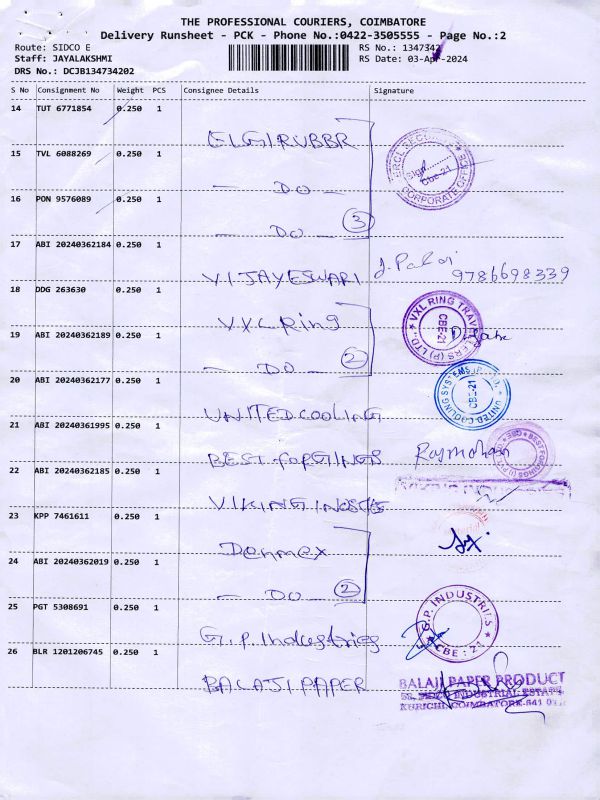 THE PROFESSIONAL COURIERS, COIMBATORE
Delivery Runsheet - PCK - Phone No.:0422-3505555 - Page No.:2
Route: SIDCO E
RS No.: 1347342
Staff: JAYALAKSHMI
RS Date: 03-Apr-2024
DRS No.: DCJB134734202
S No Consignment No Weight PCS Consignee Details Signature
14 TUT 6771854 0.250 1
ELGI RUBBR
15 TVL 6088269 0.250 1
CORPORATE OFFICE
CBE-21
— DO —
16 PON 9576089 0.250 1
— DO — 3
17 ABI 20240362184 0.250 1
VIJAYESWARI
9786698339
18 DDG 263630 0.250 1
VXL Ring
VXL RING TRAVELLERS (P) LTD., CBE-21
19 ABI 20240362189 0.250 1
— DO — 2
20 ABI 20240362177 0.250 1
UNITED COOLING
UNITED COOLING SYSTEMS CBE-21
21 ABI 20240361995 0.250 1
BEST FORGINGS
Rajmohan
BEST FORGINGS CBE
22 ABI 20240362185 0.250 1
VIKING INDS
23 KPP 7461611 0.250 1
Denmex
24 ABI 20240362019 0.250 1
— DO — 2
25 PGT 5308691 0.250 1
G.P. Industries
G.P. INDUSTRIES CBE : 21
26 BLR 1201206745 0.250 1
BALAJI PAPER
BALAJI PAPER PRODUCT
SIDCO INDUSTRIAL ESTATE
KURICHI, COIMBATORE-641